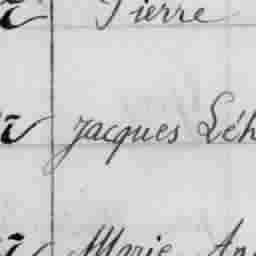 Pierre
Jacques Léh
Marie An